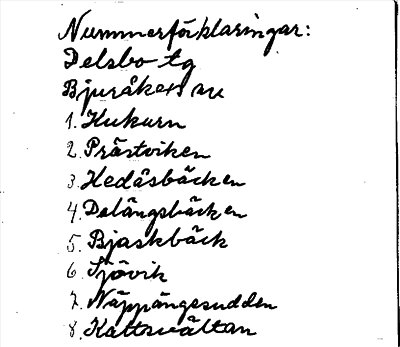 Nummerförklaringar:
Delsbo tg
Bjuråkers sn
1. Kukurn
2. Prästviken
3. Hedåsbäcken
4. Dalängsbäcken
5. Bjaskbäck
6. Sjövik
7. Näppängesudden
8. Kattsvältan